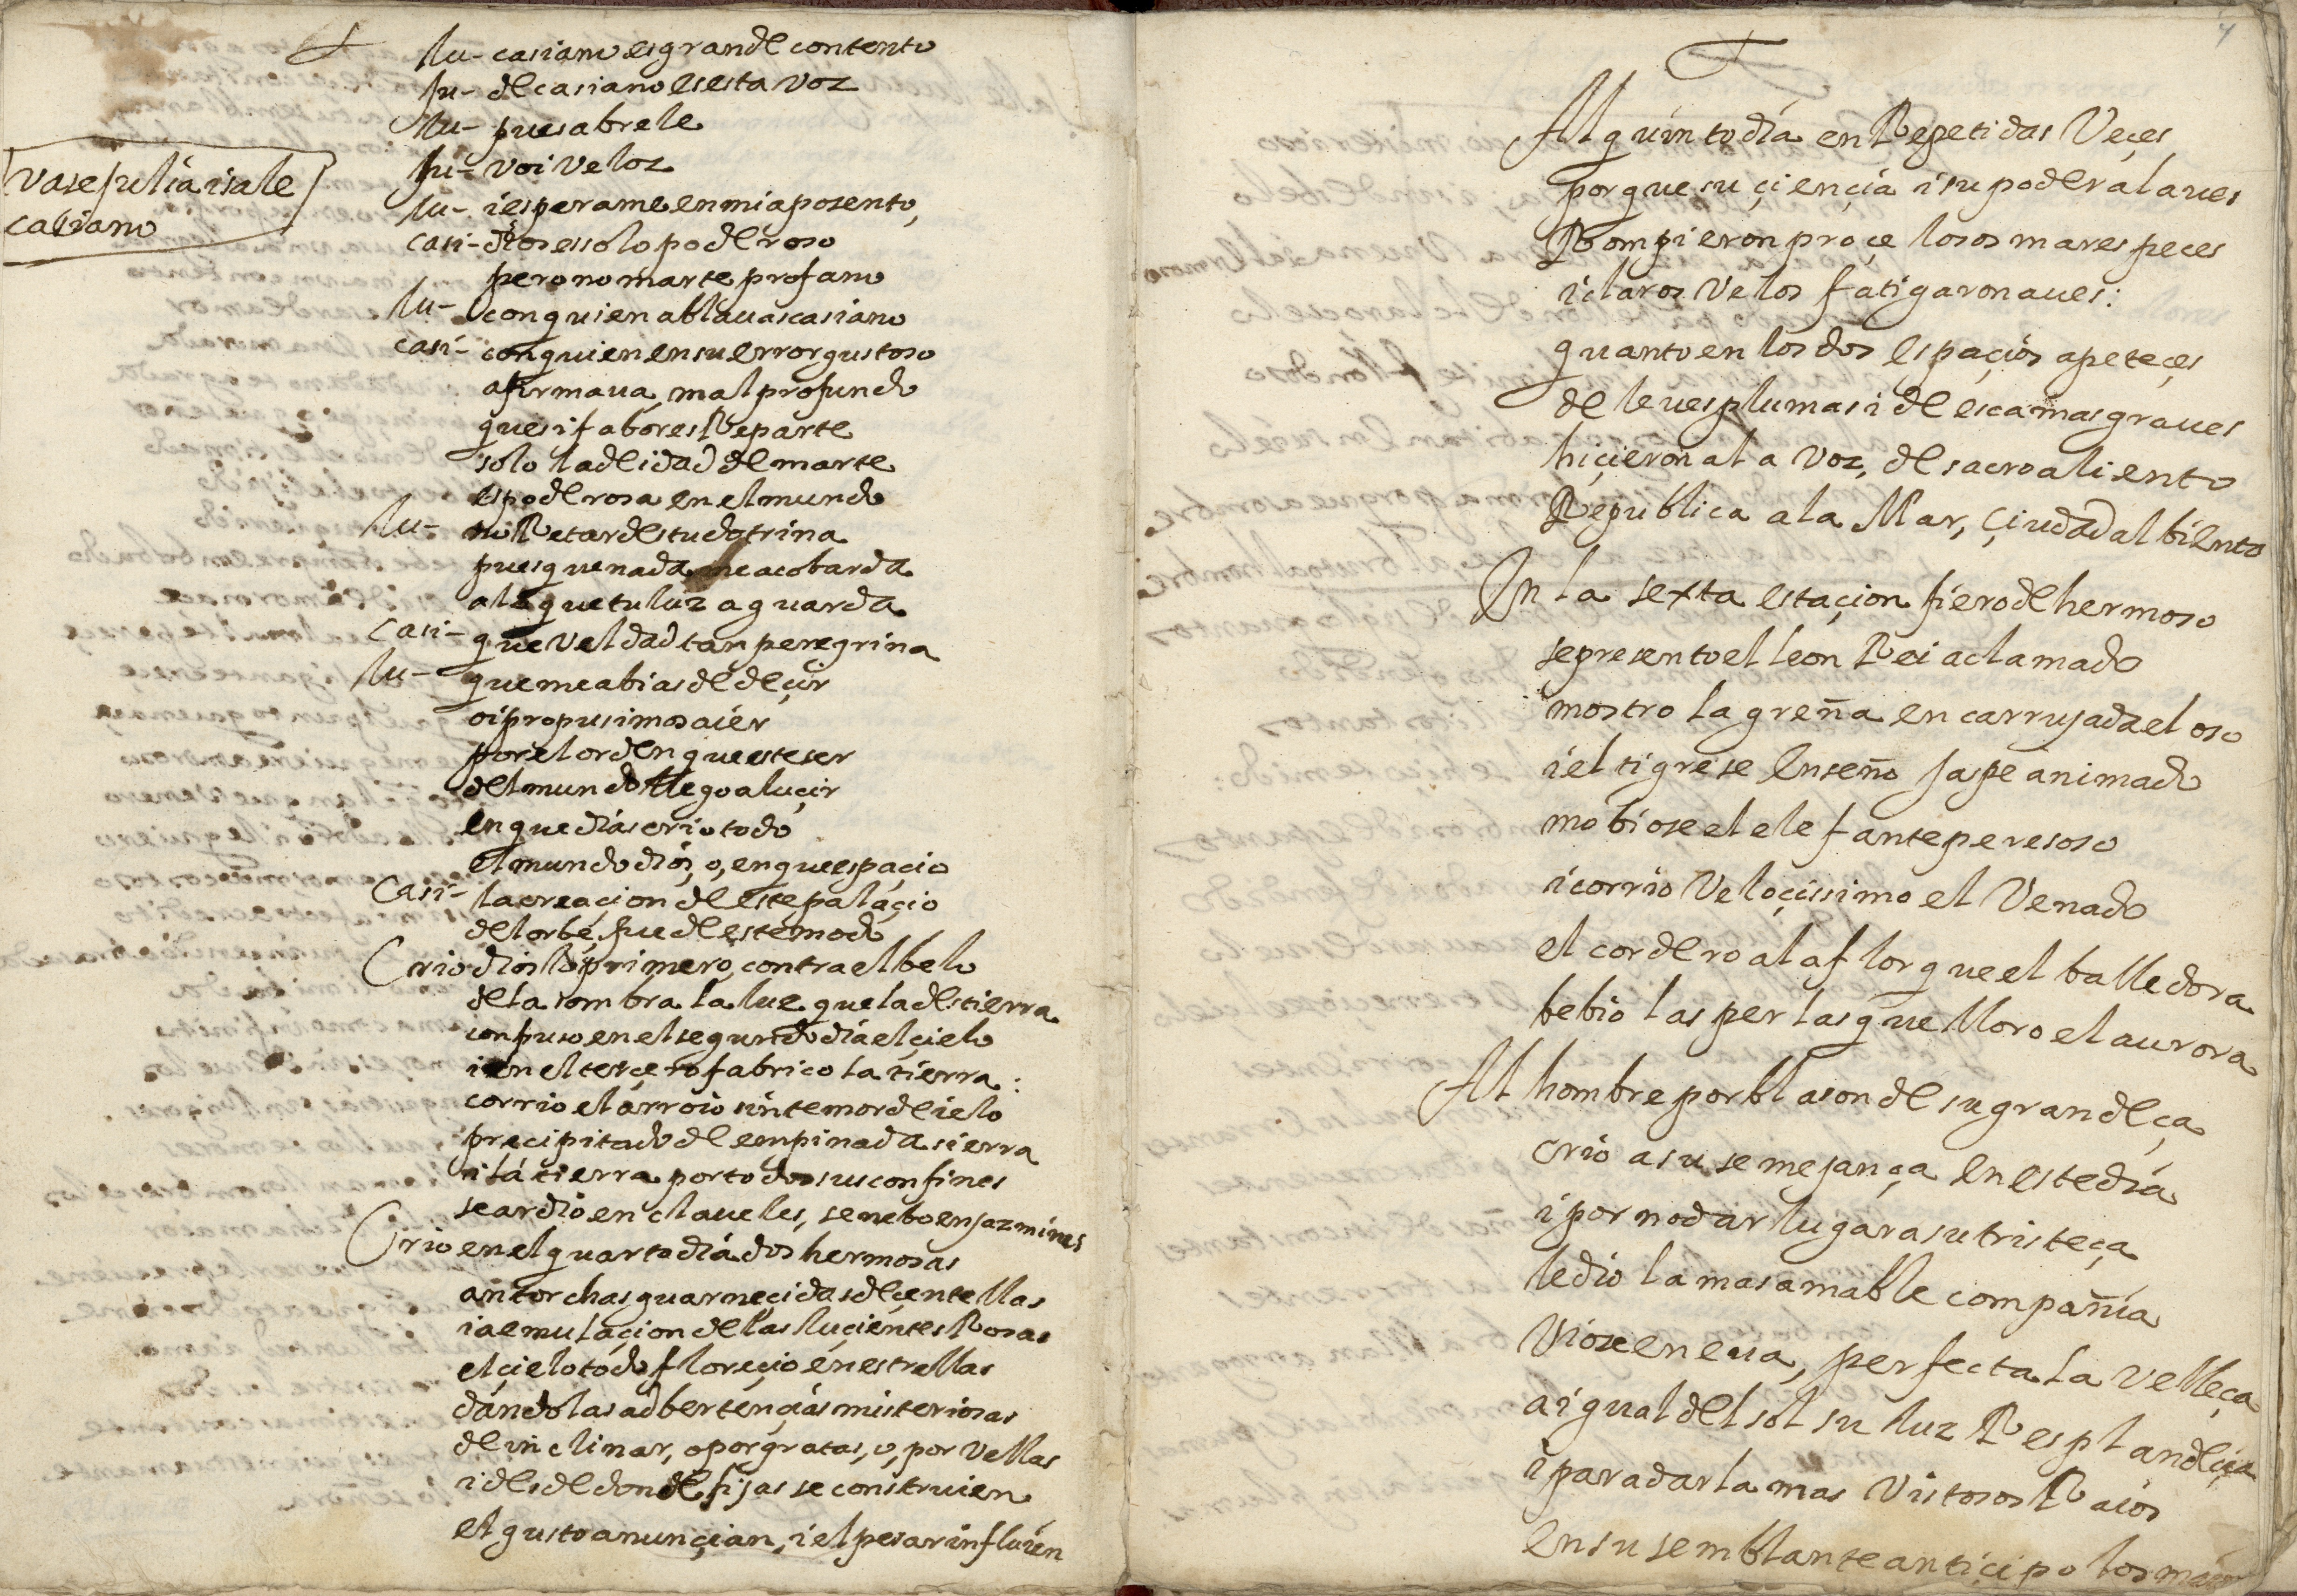 lu- casiano es grande contento
ju- de casiano es esta voz
lu- pues abrele
ju- voi veloz
vase julia i sale
casiano
lu- i esperame en mi aposento
casi- dios es solo poderoso
pero no marte profano
lu- con quien ablauas casiano
casi- con quien en su error gustoso
afirmaua, mal profundo
que si fabores Reparte
solo la deidad de marte
es poderosa en el mundo
lu- no Retardes tu dotrina
pues que nada me acobarda
a la que tu luz aguarda
casi- que veldad tan peregrina
lu- que me abias de deçir
oi propusimos aier
por el orden que este ser
del mundo llego a luçir
en que dias crio todo
el mundo dios, o, en que espaçio
Casi- la creaçion de este palaçio
del orbe, fue de este modo
Crio dios lo primero, contra el belo
de la sombra la luz que la destierra
conpuso en el segundo dia el çielo
i en el terçero fabrico la tierra:
corrio el arroio sin temor de ielo
preçipitado de enpinada sierra
i la tierra por todos sus confines
se ardio en claueles, se nebo en jazmines
Crio en el quarto dia dos hermosas
antorchas guarneçidas de çentellas
i a emulaçion de las luçientes Rosas
el çielo todo floreçio en estrellas
dandolas adbertençias misteriosas
de inclinar, o por gratas, o, por vellas
i desde donde fijas se construien
el gusto anunçian, i el pesar influien
Al quinto dia en Repetidas Veçes
porque su çiençia i su poder alaues
Rompieron proçelosos mares peces
i claros Velos fatigaron aues:
quanto en los dos espaçios apeteçes
de leues plumas i de escamas graues
hiçieron a la voz, de sacro aliento
Republica a la Mar, çiudad al biento
En la sexta estaçion fiero de hermoso
se presento el leon Rei aclamado
mostro la greña encarrujada el oso
i el tigre se enseño jaspe animado
mobiose el elefante peresoso
i corrio Veloçissimo el Venado
el cordero a la flor que el balle dora
bebio las perlas que lloro el aurora
Al hombre por blason de su grandeça
crio a su semejança en este dia
i por no dar lugar a su tristeça
le dio la mas amable compañia
Viose en eua, perfecta la velleça
a igual del sol su luz Resplandeçia
i para dar la mas vistosos Raios
en su semblante antiçipo los maios